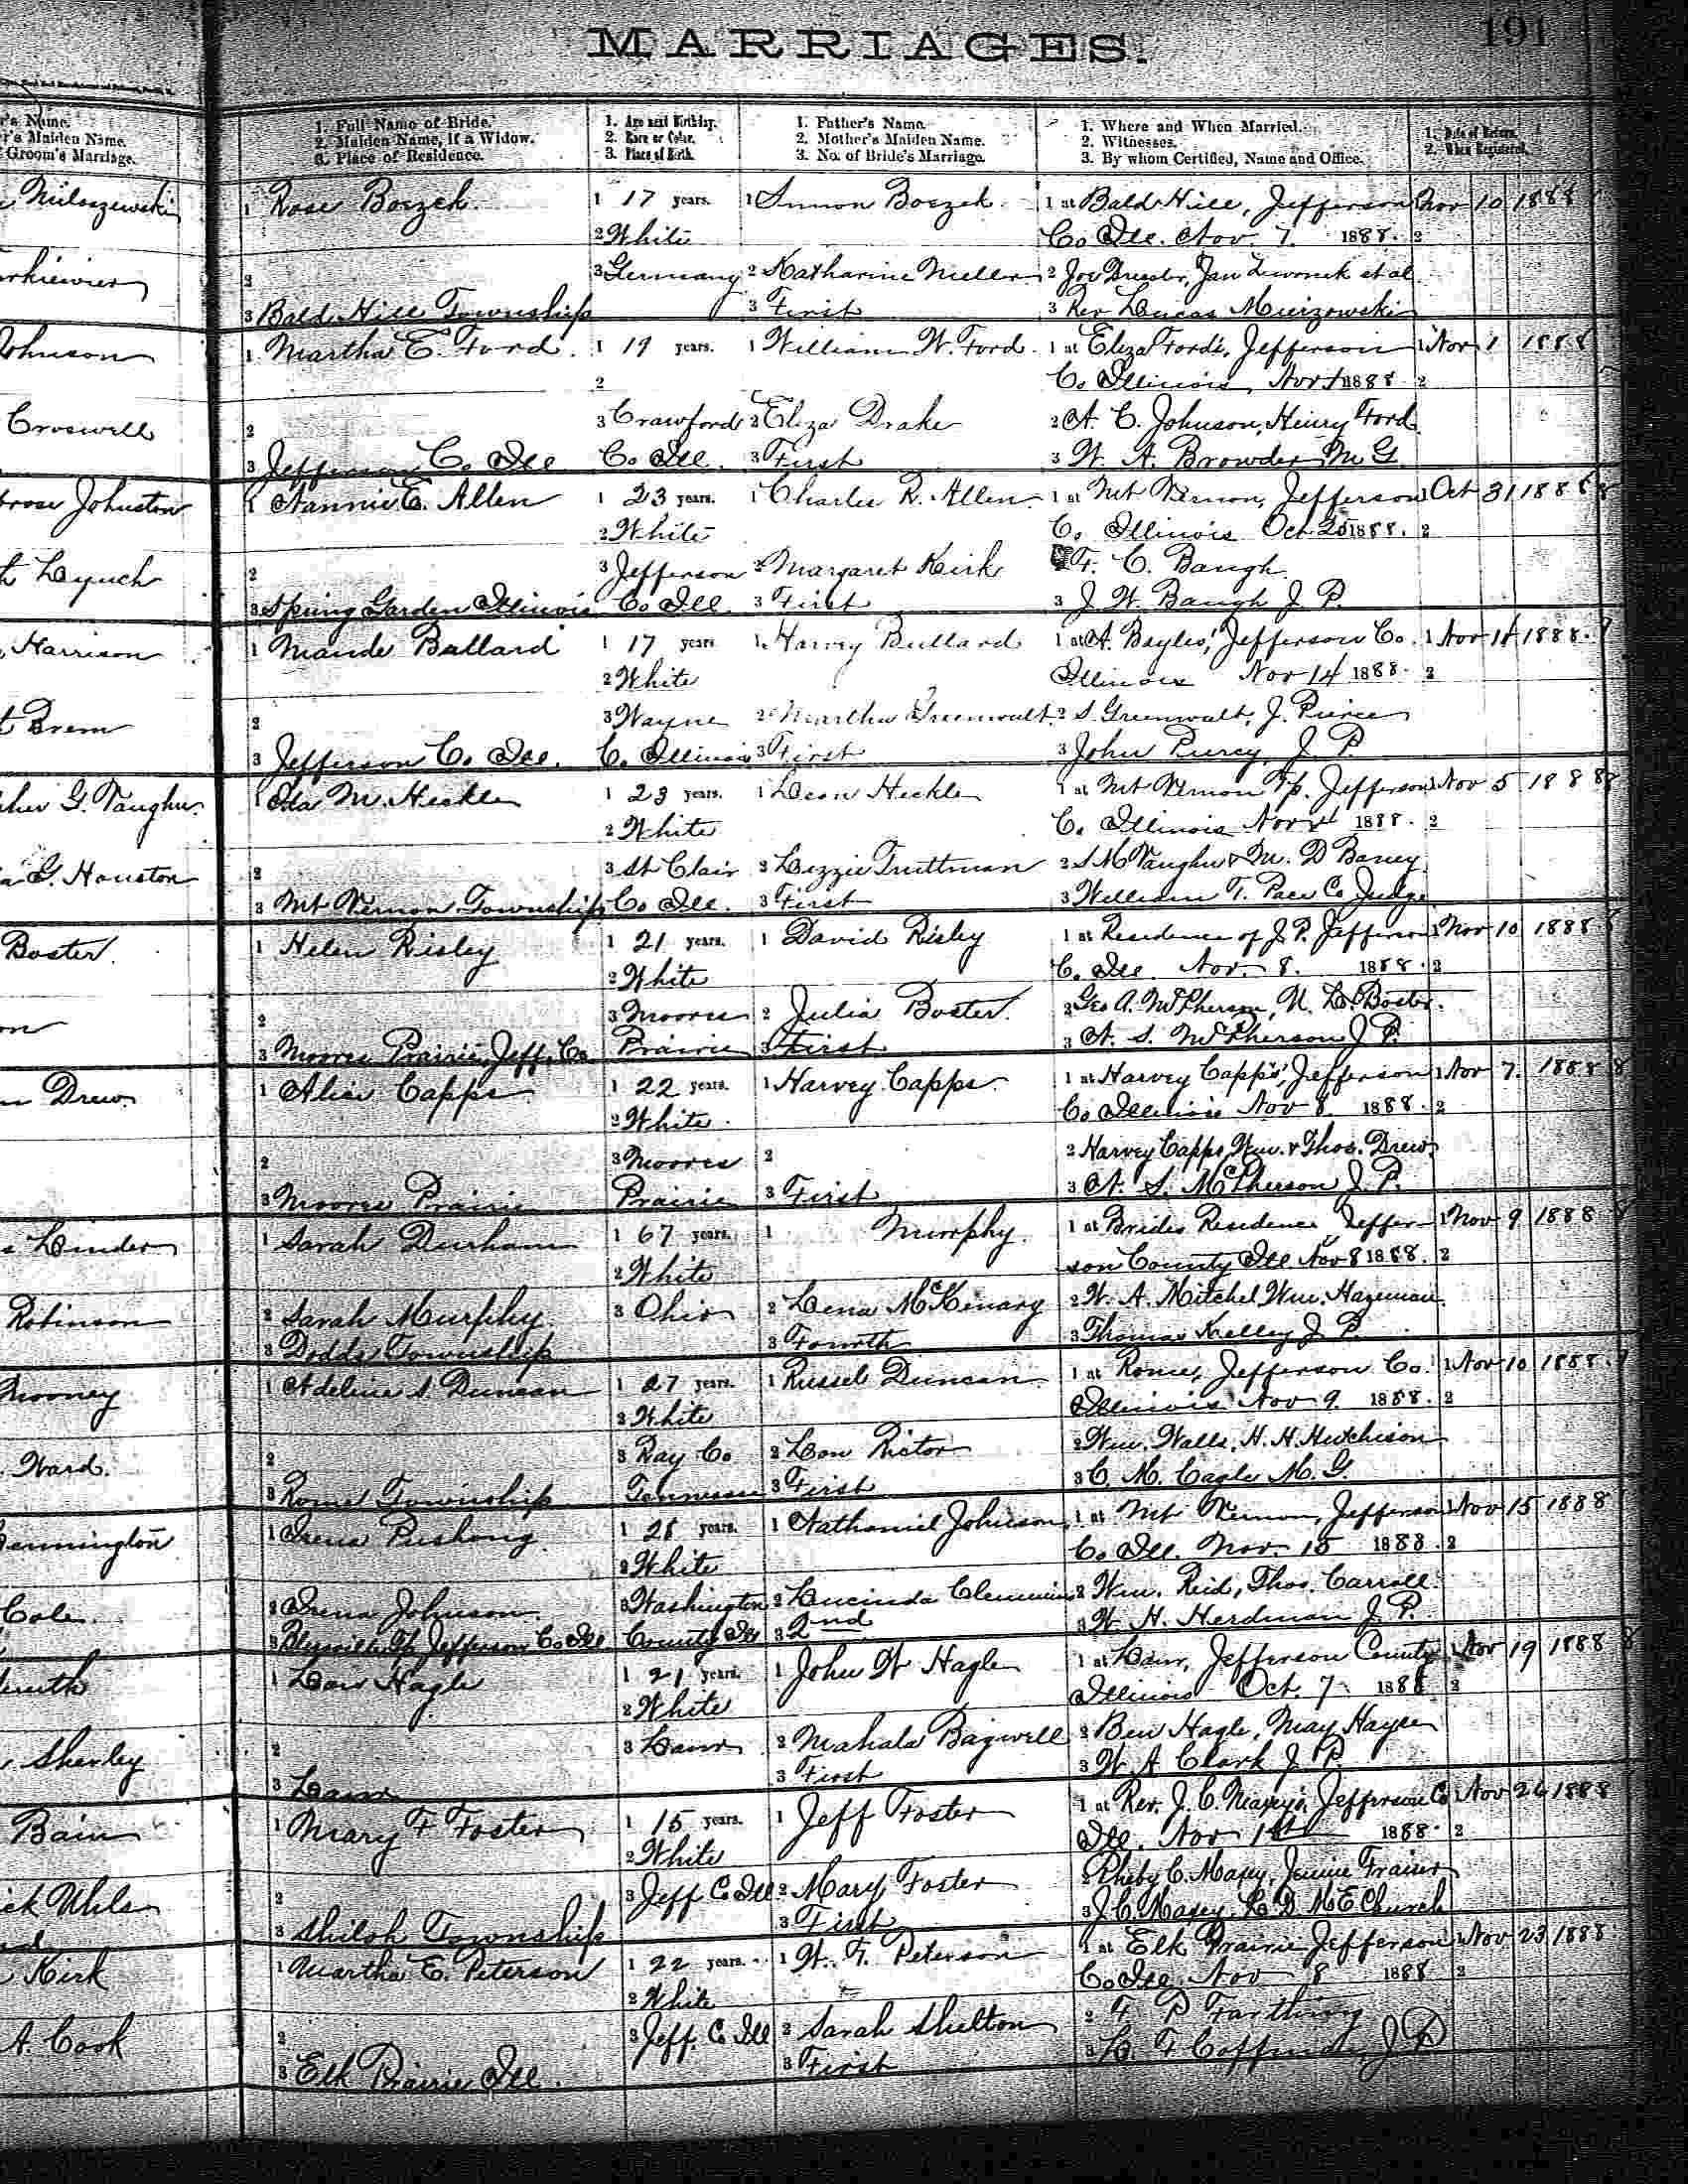 191
MARRIAGES.
r's Name.
r's Maiden Name.
Groom's Marriage.
1. Full Name of Bride.
2. Maiden Name, if a Widow.
3. Place of Residence.
1. Age next Birthday.
2. Race or Color.
3. Place of Birth.
1. Father's Name.
2. Mother's Maiden Name.
3. No. of Bride's Marriage.
1. Where and When Married.
2. Witnesses.
3. By whom Certified, Name and Office.
1. Date of Return.
2. When Registered.
Miloszewski
1 Rose Boezek 1 17 years. 1 Simon Boezek 1 at Bald Hill, Jefferson Nov 10 1888
2 White Co Ill. Nov. 7. 1888. 2
2 3 Germany 2 Katharine 2 Joe Jan et al
3 Bald Hill Township 3 First 3 Rev Lucas
Johnson
1 Martha E. Ford. 1 19 years. 1 William W. Ford. 1 at Eliza Ford's, Jefferson 1 Nov 1 1888
2 Co Illinois, Nov 1 1888. 2
Croswell
2 3 Crawford 2 Eliza Drake 2 A. C. Johnson, Henry Ford
3 Jefferson Co Ill Co Ill. 3 First 3 W. A. Browder M. G.
brose Johnston
1 Nannie E. Allen 1 23 years. 1 Charles R. Allen. 1 at Mt Vernon, Jefferson Oct 31 1888
2 White Co. Illinois Oct 1888. 2
h Lynch
2 3 Jefferson 2 Margaret Kirk F. C. Baugh
3 Spring Garden Illinois Co Ill 3 First 3 J. W. Baugh J. P.
Harrison
1 Maude Bullard 1 17 years 1 Harvey Bullard 1 at A. Bayles', Jefferson Co. 1 Nov 1888.
2 White Illinois Nov 14 1888. 2
t Brem
2 3 Wayne 2 Martha Greenwalt 2 S. Greenwalt, J. Pierce
3 Jefferson Co. Ill. Co. Illinois 3 First 3 John J. P.
pher G. Vaughn.
1 Ida M. Heckle 1 23 years. 1 Leon Heckle 1 at Mt Vernon Tp. Jefferson Nov 5 1888
2 White Co. Illinois Nov 4 1888. 2
a G. Houston
2 3 St Clair 2 Lizzie Truttman 2 S M Vaughn & M. D Baney
3 Mt Vernon Township Co Ill. 3 First 3 William T. Pace Co Judge
Boster.
1 Helen Risley 1 21 years. 1 David Risley 1 at Residence of J. P. Jefferson Nov 10 1888
2 White Co. Ill. Nov. 8. 1888. 2
2 3 Moores 2 Julia Boster. 2 Geo A. McPherson, N. L. Boster.
3 Moores Prairie, Jeff. Co Prairie 3 First 3 A. S. McPherson J. P.
Drew
1 Alice Capps 1 22 years. 1 Harvey Capps. 1 at Harvey Capps', Jefferson 1 Nov 7. 1888
2 White Co Illinois Nov 8 1888. 2
2 3 Moores 2 2 Harvey Capps, Wm. & Thos. Drew
3 Moores Prairie Prairie 3 First 3 A. S. McPherson J. P.
Linder
1 Sarah Durham 1 67 years. 1 Murphy. 1 at Brides Residence Jeffer- 1 Nov 9 1888
2 White son County Ill Nov 8 1888. 2
Robinson
2 Sarah Murphy. 3 Ohio 2 Lena McKenary 2 W. A. Mitchel Wm. Hageman
3 Dodds Township 3 Fourth 3 Thomas Kelley J. P.
Mooney
1 Adeline S. Duncan 1 27 years. 1 Russel Duncan 1 at Rome, Jefferson Co. 1 Nov 10 1888.
2 White Illinois Nov 9. 1888. 2
Ward.
2 3 Ray Co 2 Lou Rictor 2 Wm. Walls, H. H. Hutchison
3 Rome Township Tennessee 3 First 3 C. M. Cagle M. G.
ennington
1 Irena Pushong. 1 28 years. 1 Nathaniel Johnson 1 at Mt Vernon, Jefferson Nov 15 1888
2 White Co. Ill. Nov 15 1888. 2
Cole.
2 Irena Johnson. 3 Washington 2 Lucinda Clemmins 2 Wm. Reid, Thos. Carroll
3 Blissville Tp. Jefferson Co Ill County Ill 3 2nd 3 W. H. Herdman J. P.
1 Lou Hagle 1 21 years. 1 John W Hagle 1 at Laur, Jefferson County Nov 19 1888
2 White Illinois Oct. 7 1888 2
Sherley
2 3 Laur 2 Mahala Bagwell 2 Ben Hagle, May Hayse
3 Laur 3 First 3 W A Clark J. P.
Bain
1 Mary F Foster 1 15 years. 1 Jeff Foster 1 at Rev. J. C. Maxey's, Jefferson Co Nov 26 1888
2 White Ill. Nov 1st 1888. 2
ick Uhls
2 3 Jeff Co Ill 2 Mary Foster 2 Pheby C. Maxey, Jennie
3 Shiloh Township 3 First 3 J. C. Maxey. L. D. M E Church
Kirk
1 Martha E. Peterson 1 22 years. 1 W. T. Peterson 1 at Elk Prairie Jefferson Nov 23 1888
2 White Co. Ill. Nov 8 1888 2
A. Cook
2 3 Jeff. Co Ill 2 Sarah Shelton 2 F P Farthing
3 Elk Prairie Ill. 3 First 3 J P